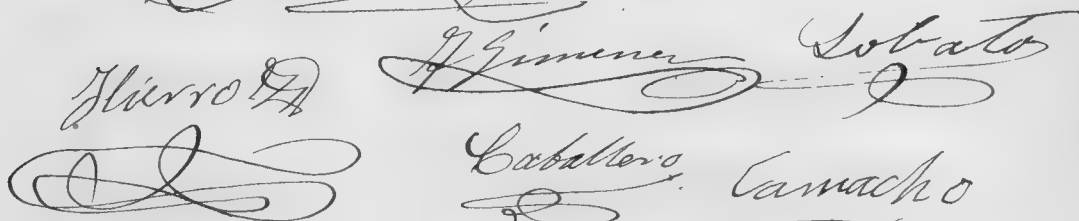 Hierro
G. Gimenez
Lobato
Caballero
Camacho